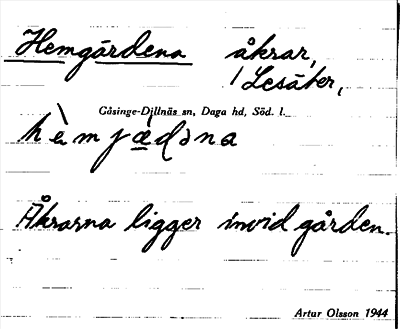 Hemgårdena åkrar,
/ Lesäter,
Gåsinge-Dillnäs sn, Daga hd, Söd. l.
hèmjä̀dəna
Åkrarna ligger invid gården.
Artur Olsson 1944